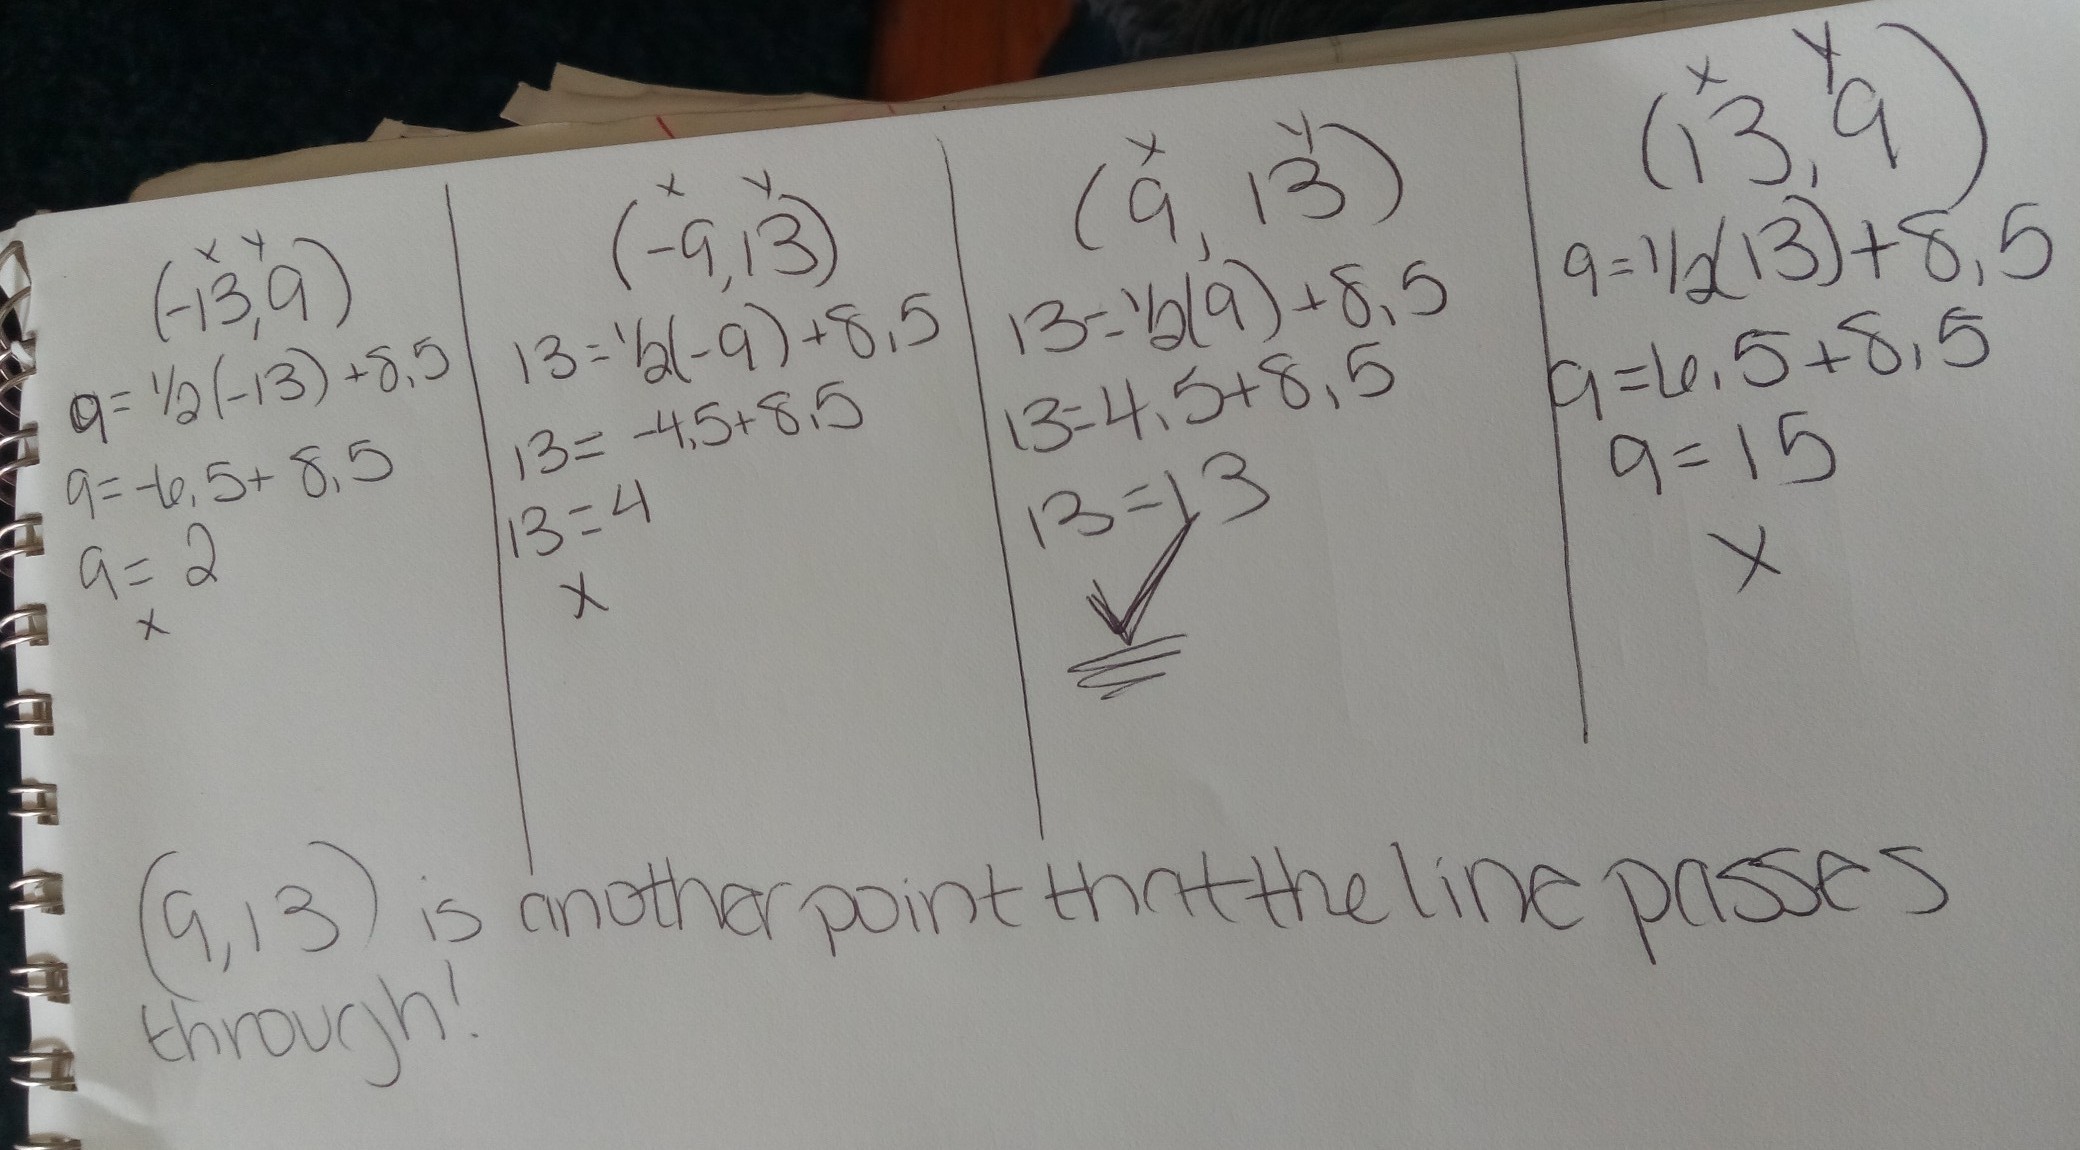 x y
(-13,9)
9=1/2(-13)+8.5
9=-6.5+8.5
9=2
x
x y
(-9,13)
13=1/2(-9)+8.5
13=-4.5+8.5
13=4
x
x y
(9,13)
13=1/2(9)+8.5
13=4.5+8.5
13=13
✓
x y
(13,9)
9=1/2(13)+8.5
9=6.5+8.5
9=15
x
(9,13) is another point that the line passes
through!